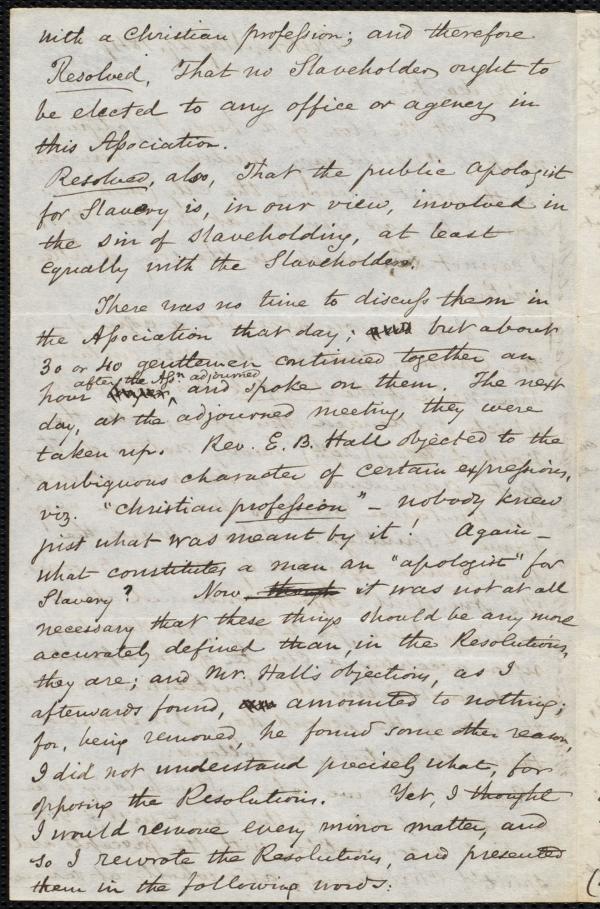 with a Christian profession; and therefore
Resolved, That no Slaveholder, ought to
be elected to any office or agency in
this Association.
Resolved, also, That the public apologist
for Slavery is, in our view, involved in
the sin of slaveholding, at least
equally with the Slaveholder.
There was no time to discuss them in
the Association that day; but about
30 or 40 gentlemen continued together an
after the Assn. adjourned
hour and spoke on them. The next
day, at the adjourned meeting, they were
taken up. Rev. E. B. Hall objected to the
ambiguous character of certain expressions,
viz. "Christian profession" – nobody knew
just what was meant by it! Again –
what constitutes a man an "apologist" for
Slavery? Now though it was not at all
necessary that these things should be any more
accurately defined than, in the Resolutions,
they are; and Mr. Hall's objections, as I
afterwards found, amounted to nothing;
for, being removed, he found some other reason,
I did not understand precisely what, for
opposing the Resolutions. Yet, I thought
I would remove every minor matter, and
so I rewrote the Resolutions, and presented
them in the following words: